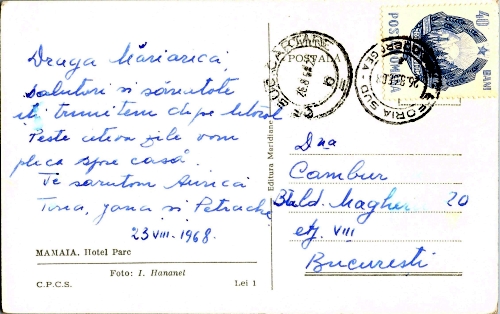 Draga Măriarica,
salutari si sănatate
iti trimitem depe litoral
Peste cateva zile vom
pleca spre casă.
Te sarutam Aurica
Tina, Jana si Petrache
23 VIII-1968.
MAMAIA. Hotel Parc
Foto: I. Hananel
C.P.C.S.
Lei 1
Editura Meridiane
CARTE
POŞTALĂ
40
BANI
POSTA
ROMANA
Dna
Cambur
Bld. Magheru 20
etj. VIII
Bucuresti